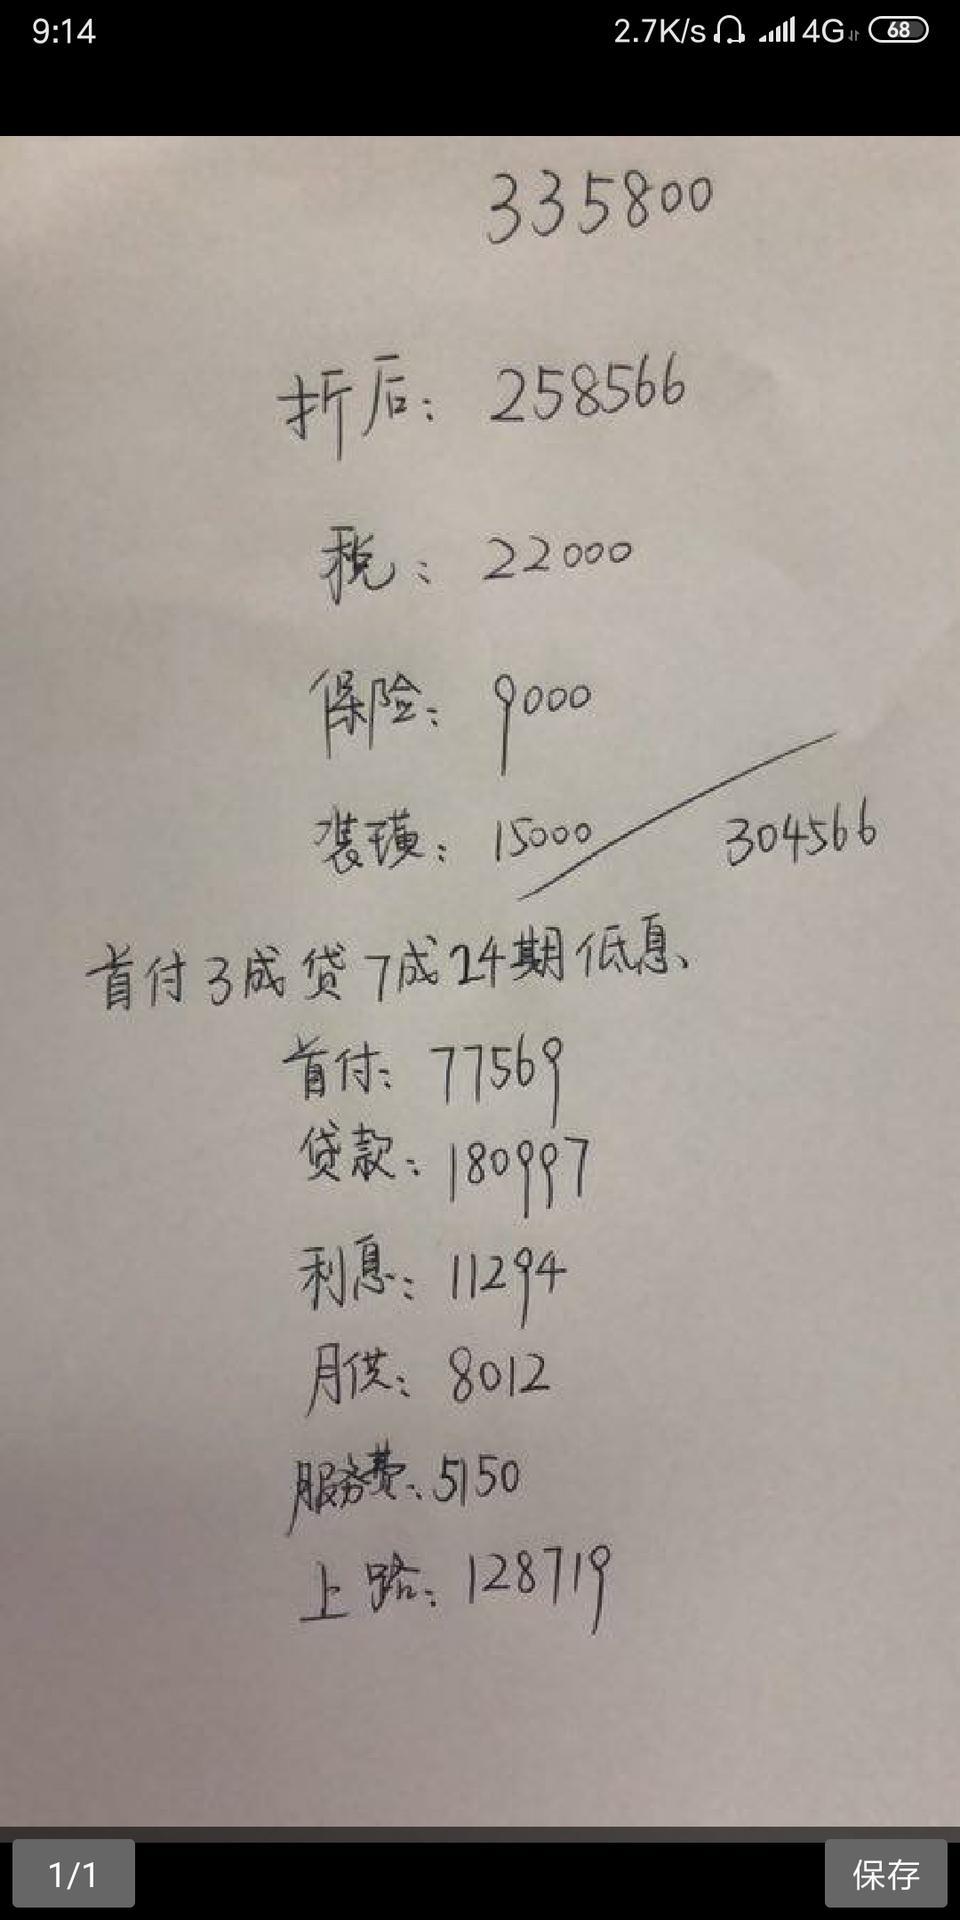 9:14 2.7K/s 4G 68
335800
折后: 258566
税: 22000
保险: 9000
装璜: 15000 304566
首付3成贷7成24期低息、
首付: 77569
贷款: 180997
利息: 11294
月供: 8012
服务费: 5150
上路: 128719
1/1 保存